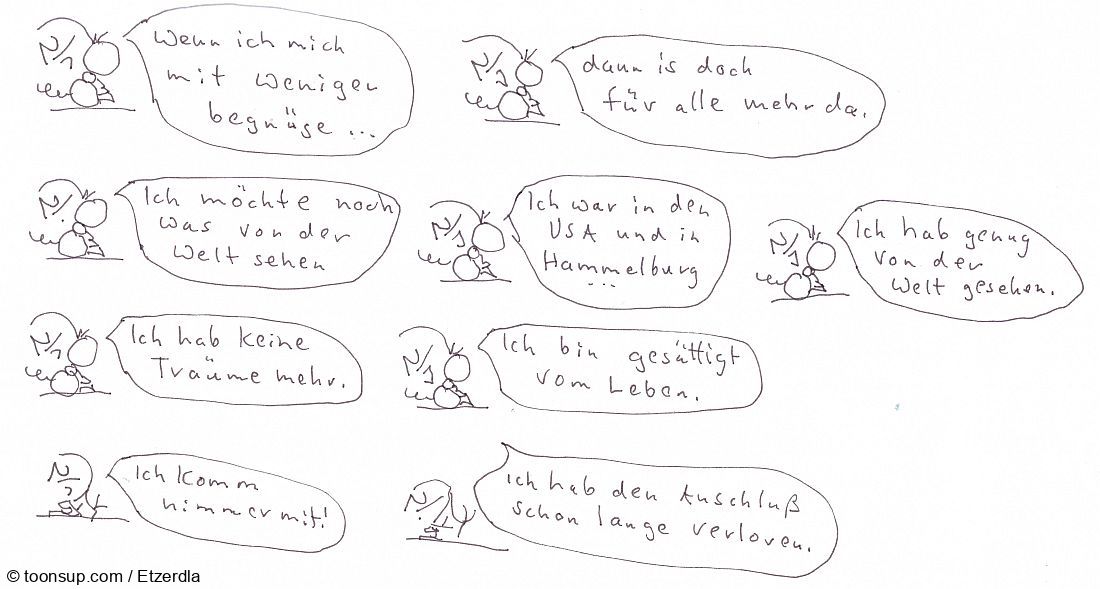 Wenn ich mich
mit weniger
begnüge...
dann is doch
für alle mehr da.
Ich möchte noch
was von der
Welt sehen
Ich war in den
USA und in
Hammelburg
...
Ich hab genug
von der
Welt gesehen.
Ich hab keine
Träume mehr.
Ich bin gesättigt
vom Leben.
Ich komm
nimmer mit!
Ich hab den Anschluß
schon lange verloren.
© toonsup.com / Etzerdla